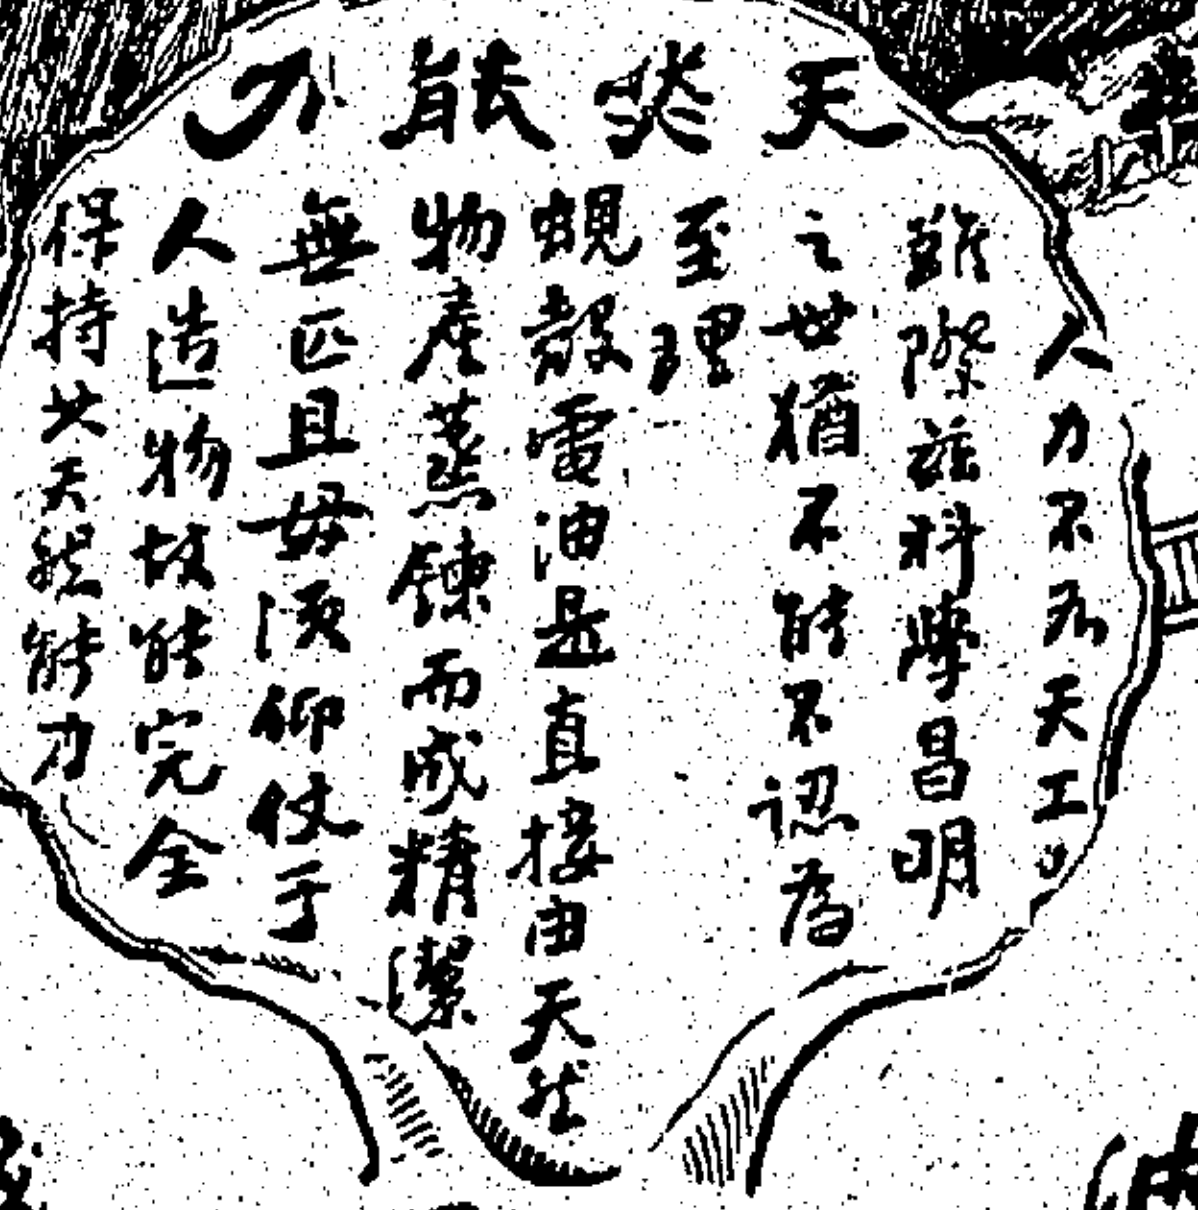 天然能力
人力不天工
雖際茲科學昌明
之世猶不能不認為
至理
蜆殼電油是直接由天然
物產蒸鍊而成精潔
無匹且毋須仰仗于
人造物故能完全
保持其天然能力